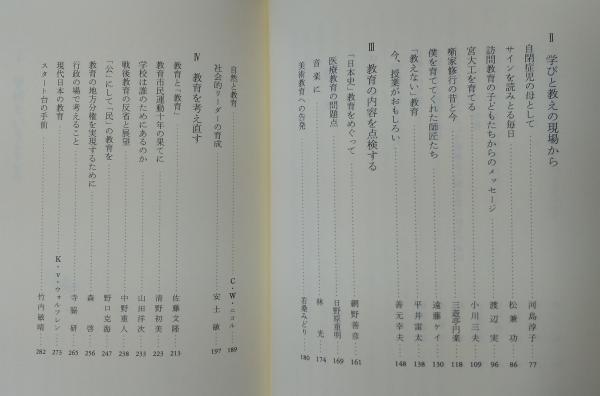 Ⅱ 学びと教えの現場から
自閉症児の母として 河島淳子 77
サインを読みとる毎日 松兼功 86
訪問教育の子どもたちからのメッセージ 渡辺実 96
宮大工を育てる 小川三夫 109
噺家修行の昔と今 三遊亭円楽 118
僕を育ててくれた師匠たち 遠藤ケイ 130
「教えない」教育 平井雷太 138
今、授業がおもしろい 善元幸夫 148
Ⅲ 教育の内容を点検する
「日本史」教育をめぐって 網野善彦 161
医療教育の問題点 日野原重明 169
音楽に 林光 174
美術教育への告発 若桑みどり 180
自然と教育 C・W・ニコル 189
社会的リーダーの育成 安土敏 197
Ⅳ 教育を考え直す
教育と「教育」 佐藤文隆 213
教育市民運動十年の果てに 清野初美 223
学校は誰のためにあるのか 山田洋次 233
戦後教育の反省と展望 中野重人 238
「公」にして「民」の教育を 野口克海 247
教育の地方分権を実現するために 森啓 256
行政の場で考えること 寺脇研 265
現代日本の教育 K・v・ウォルフレン 273
スタート台の手前 竹内敏晴 282